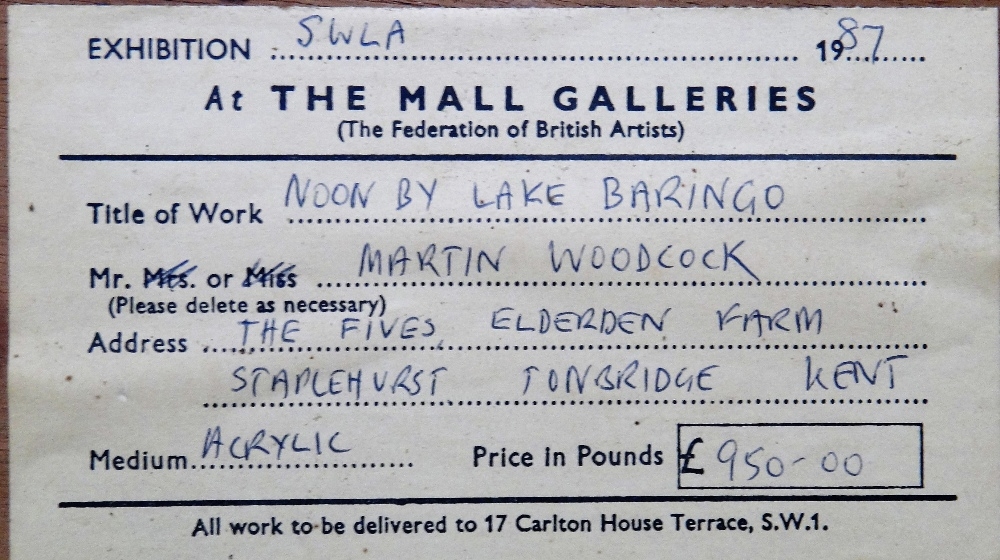 EXHIBITION SWLA 1987
At THE MALL GALLERIES
(The Federation of British Artists)
Title of Work NOON BY LAKE BARINGO
Mr. Mrs. or Miss MARTIN WOODCOCK
(Please delete as necessary)
Address THE FIVES, ELDERDEN FARM
STAPLEHURST TONBRIDGE KENT
Medium ACRYLIC Price in Pounds £950-00
All work to be delivered to 17 Carlton House Terrace, S.W.1.